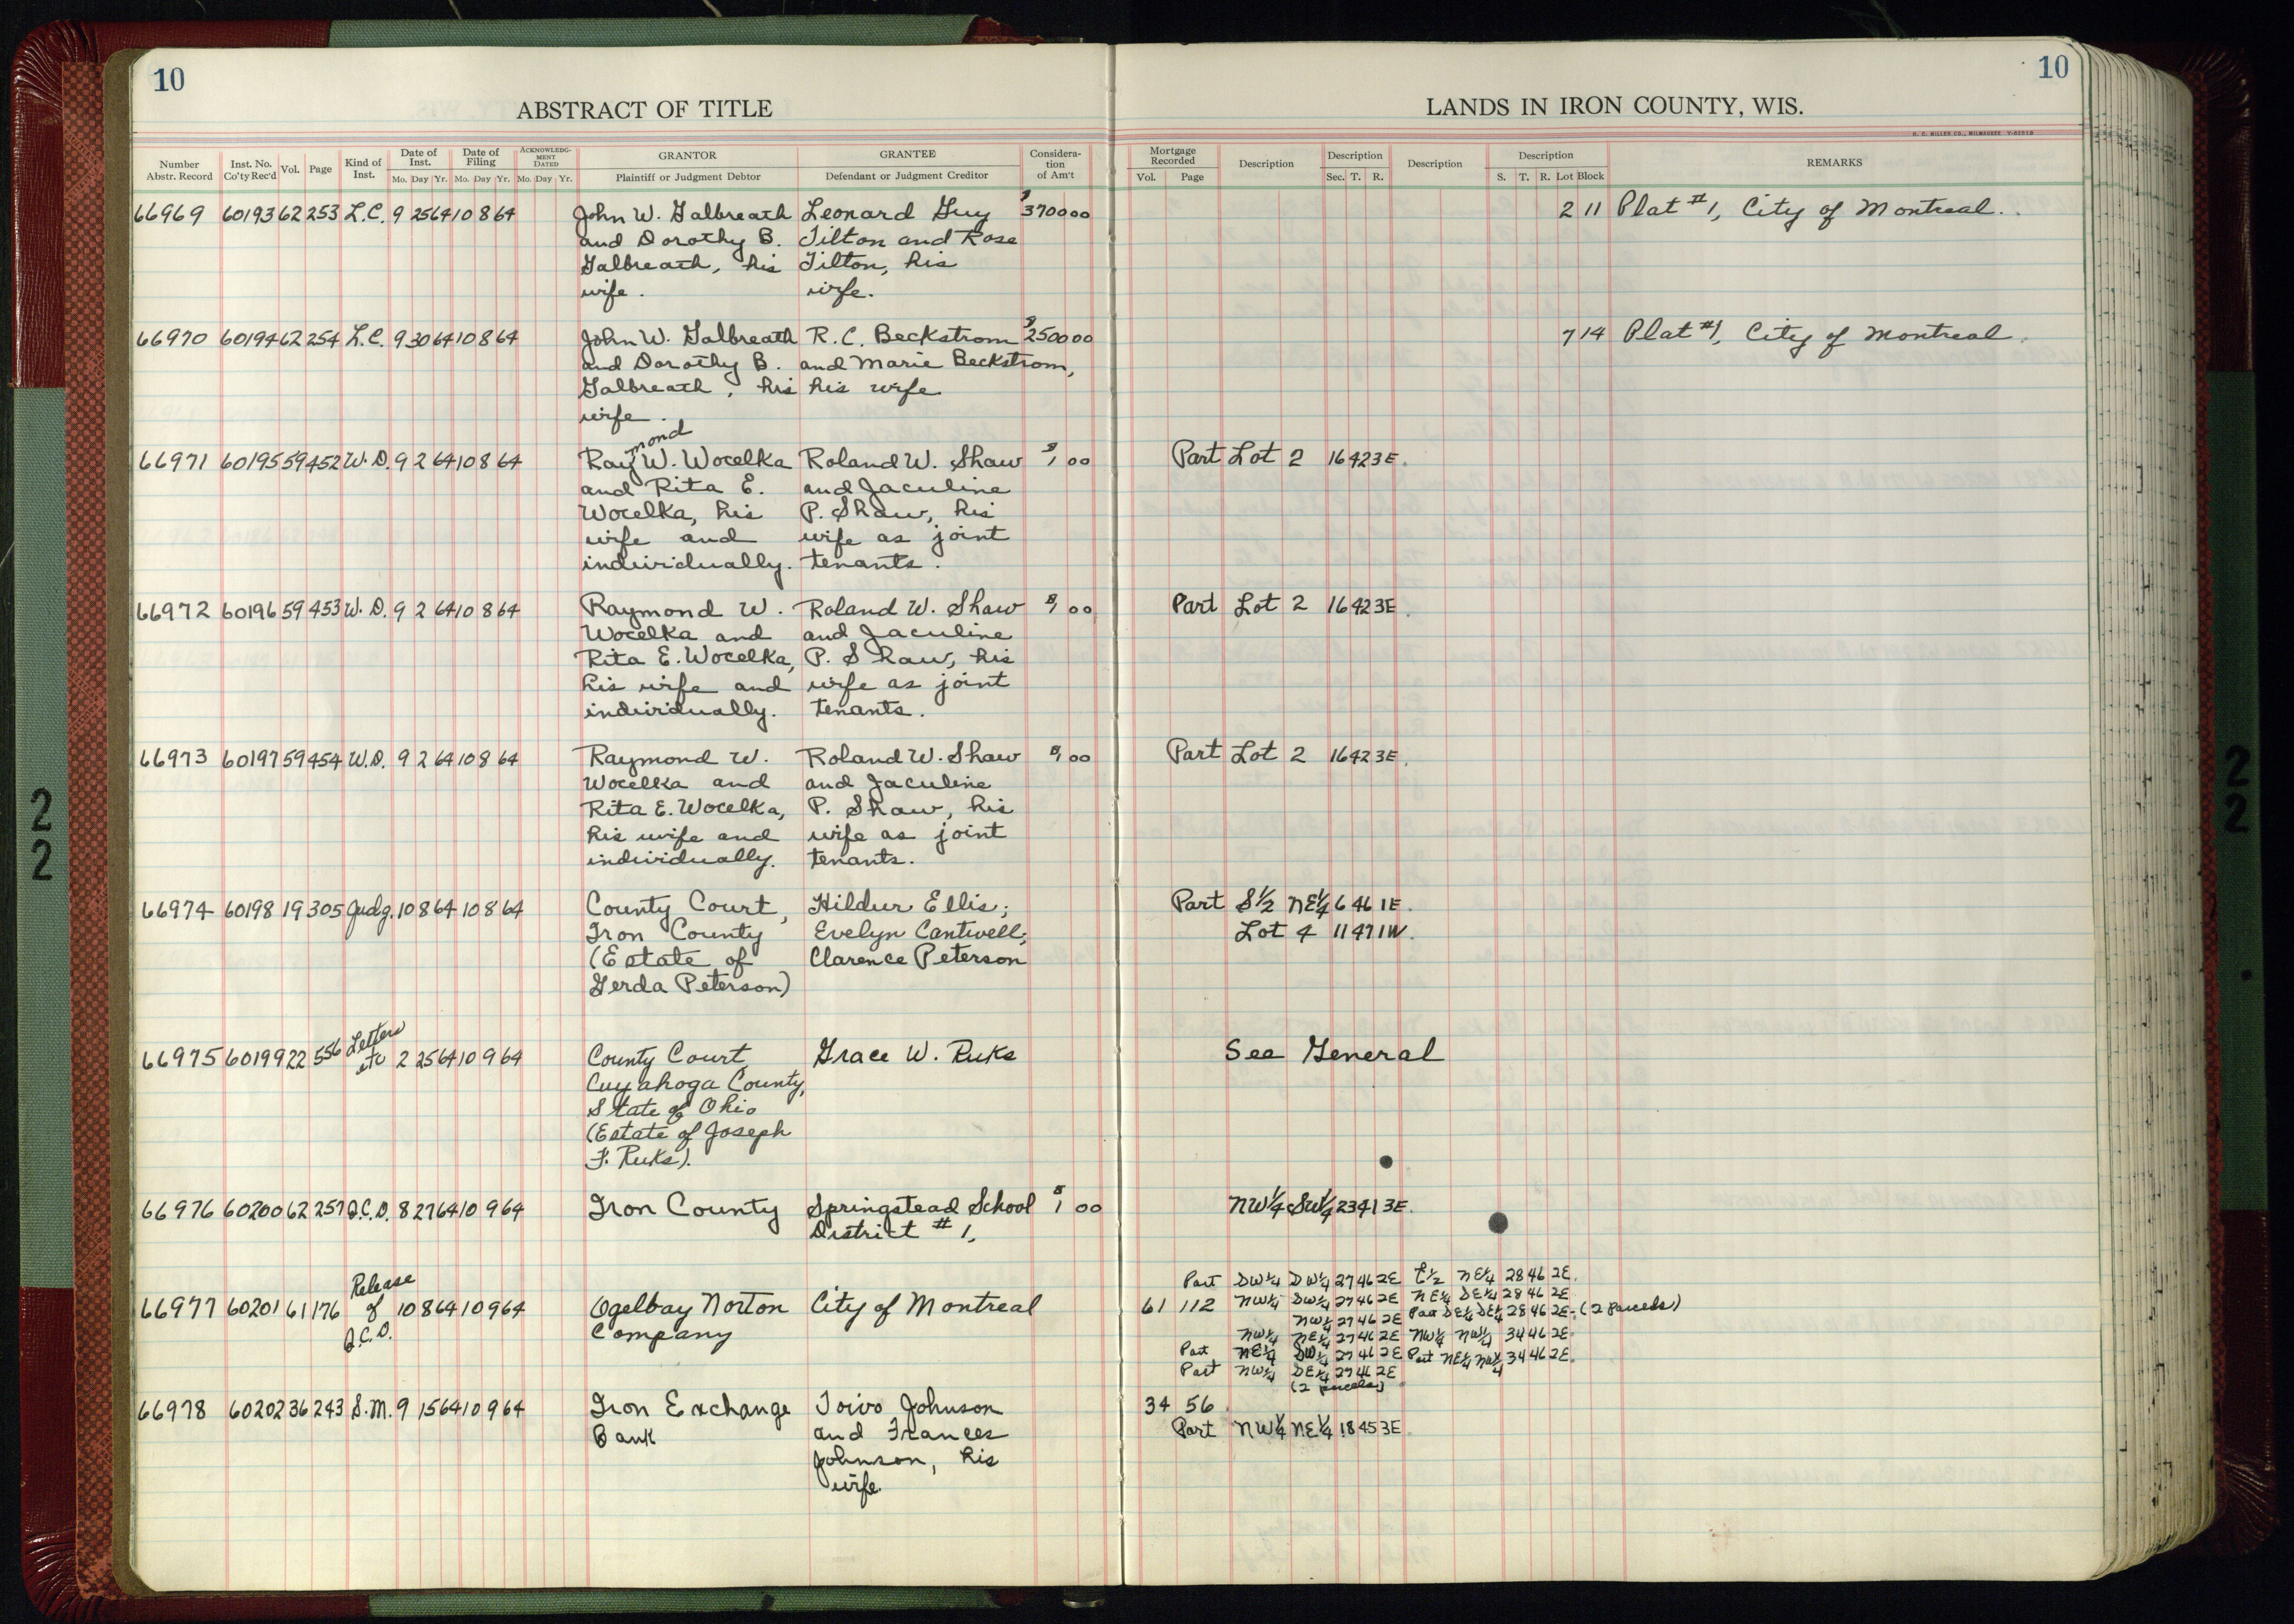 10
ABSTRACT OF TITLE
Number Abstr. Record Inst. No. Co'ty Rec'd Vol. Page Kind of Inst. Date of Inst. Mo. Day Yr. Date of Filing Mo. Day Yr. ACKNOWLEDGMENT DATED Mo. Day Yr. GRANTOR Plaintiff or Judgment Debtor GRANTEE Defendant or Judgment Creditor Consideration of Am't
10
LANDS IN IRON COUNTY, WIS.
H. C. MILLER CO., MILWAUKEE
Mortgage Recorded Vol. Page Description Description Sec. T. R. Description Description S. T. R. Lot Block REMARKS
66969 60193 62 253 L.C. 9 25 64 10 8 64 John W. Galbreath Leonard Guy $3700 00 2 11 Plat #1, City of Montreal.
and Dorothy B. Tilton and Rose
Galbreath, his Tilton, his
wife. wife.
66970 60194 62 254 L.C. 9 30 64 10 8 64 John W. Galbreath R. C. Beckstrom $2500 00 7 14 Plat #1, City of Montreal.
and Dorothy B. and Marie Beckstrom,
Galbreath, his his wife
wife.
66971 60195 59 452 W.D. 9 2 64 10 8 64 Raymond W. Wocelka Roland W. Shaw $1 00 Part Lot 2 16 42 3E.
and Rita E. and Jaculine
Wocelka, his P. Shaw, his
wife and wife as joint
individually. tenants.
66972 60196 59 453 W.D. 9 2 64 10 8 64 Raymond W. Roland W. Shaw $1 00 Part Lot 2 16 42 3E.
Wocelka and and Jaculine
Rita E. Wocelka, P. Shaw, his
his wife and wife as joint
individually. tenants.
66973 60197 59 454 W.D. 9 2 64 10 8 64 Raymond W. Roland W. Shaw $1 00 Part Lot 2 16 42 3E.
Wocelka and and Jaculine
Rita E. Wocelka, P. Shaw, his
his wife and wife as joint
individually. tenants.
66974 60198 19 305 Judg. 10 8 64 10 8 64 County Court, Hildur Ellis; Part S½ NE¼ 6 46 1E.
Iron County Evelyn Cantwell; Lot 4 11 47 1W.
(Estate of Clarence Peterson
Gerda Peterson)
66975 60199 22 556 Letters etc 2 25 64 10 9 64 County Court Grace W. Ruks See General
Cuyahoga County,
State of Ohio
(Estate of Joseph
F. Ruks).
66976 60200 62 257 Q.C.D. 8 27 64 10 9 64 Iron County Springstead School $1 00 NW¼ SW¼ 23 41 3E.
District #1,
Part SW¼ SW¼ 27 46 2E E½ NE¼ 28 46 2E.
66977 60201 61 176 Release of Q.C.D. 10 8 64 10 9 64 Oglebay Norton City of Montreal 61 112 NW¼ SW¼ 27 46 2E NE¼ SE¼ 28 46 2E
Company NW¼ 27 46 2E Part SE¼ SE¼ 28 46 2E. (2 parcels)
NW¼ NE¼ 27 46 2E NW¼ NW¼ 34 46 2E.
Part NE¼ SW¼ 27 46 2E Part NE¼ NW¼ 34 46 2E.
Part NW¼ SE¼ 27 46 2E
(2 parcels)
66978 60202 36 243 S.M. 9 15 64 10 9 64 Iron Exchange Toivo Johnson 34 56
Bank and Frances Part NW¼ NE¼ 18 45 3E
Johnson, his
wife.
22
22